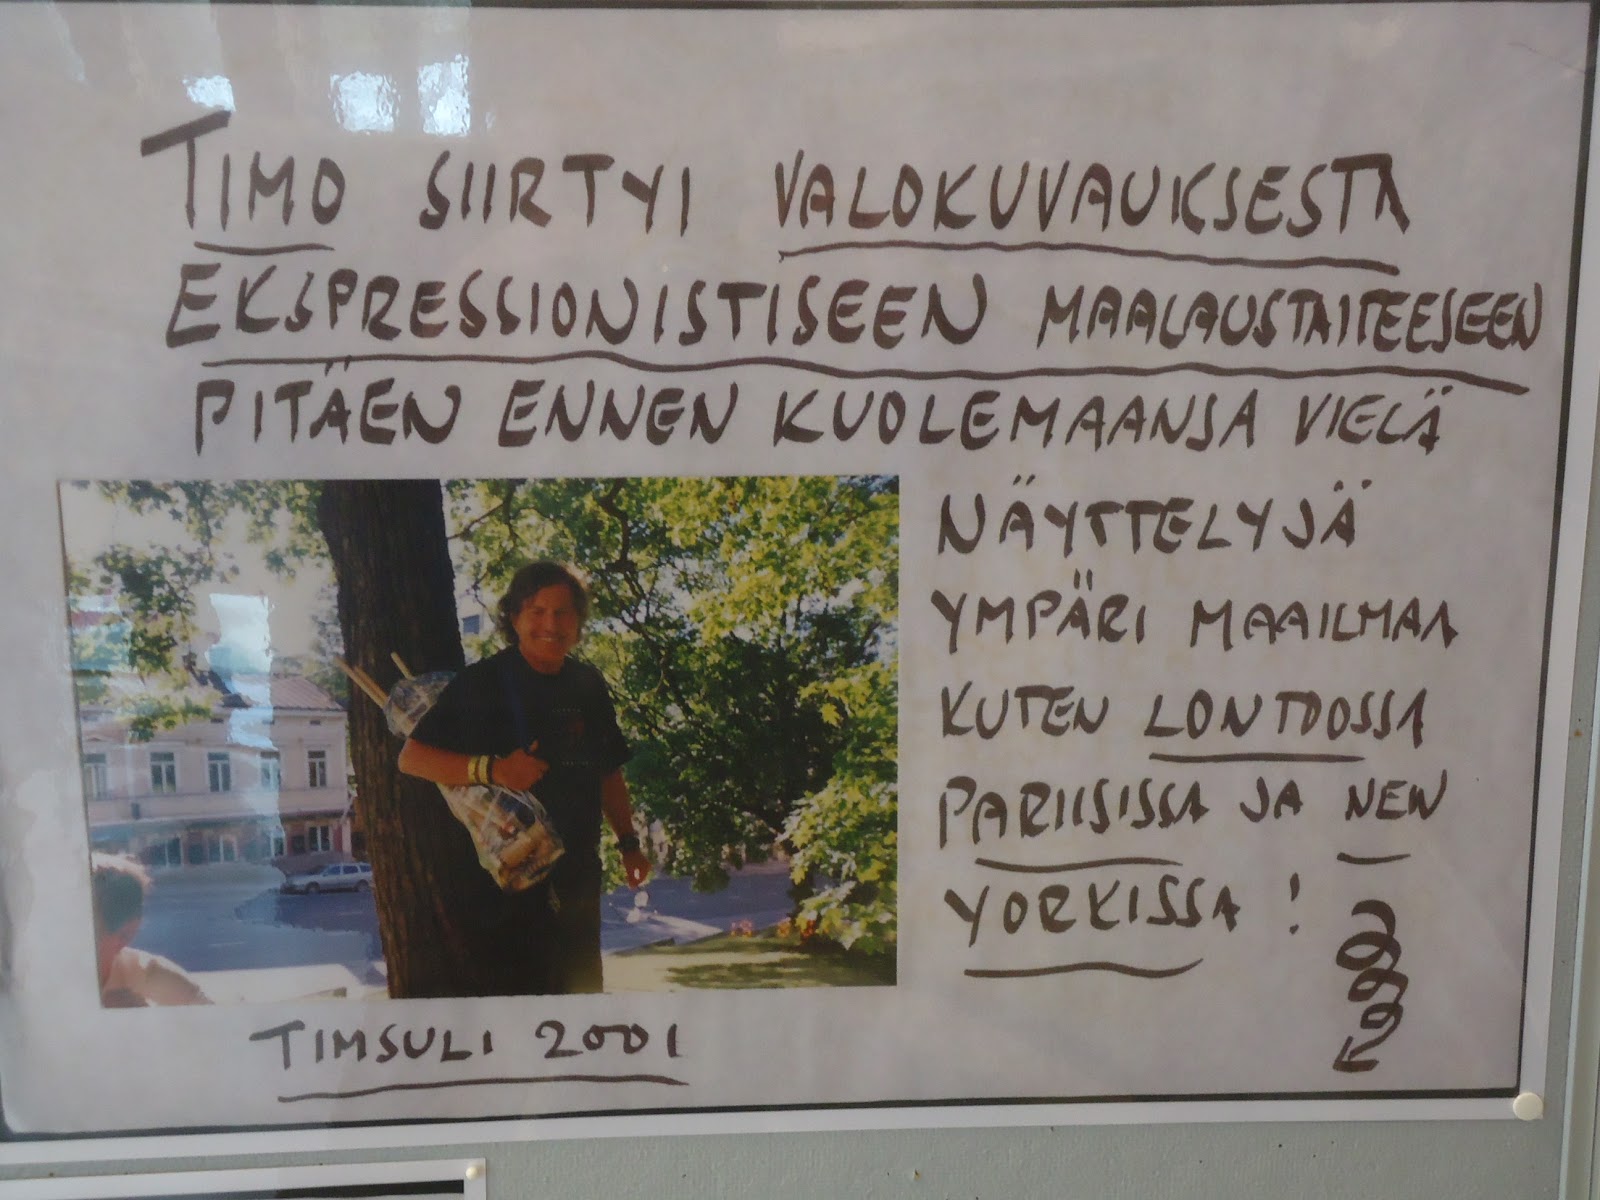 TIMO SIIRTYI VALOKUVAUKSESTA
EKSPRESSIONISTISEEN MAALAUSTAITEESEEN
PITÄEN ENNEN KUOLEMAANSA VIELÄ
NÄYTTELYJÄ
YMPÄRI MAAILMAA
KUTEN LONTOOSSA
PARIISISSA JA NEW
YORKISSA!
TIMSULI 2001